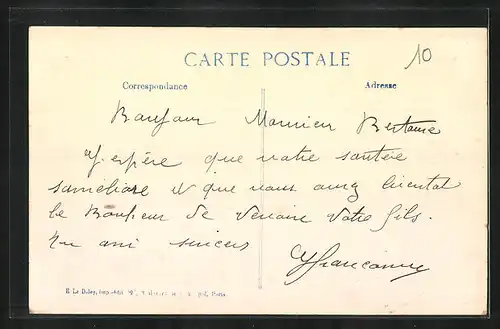 10
CARTE POSTALE
Correspondance
Adresse
Bonjour Monsieur
J'espère que votre santée
saméliore et que vous aurez bientôt
le Bonheur de venoire votre fils.
Un ami sincere
E. Le Deley, Paris